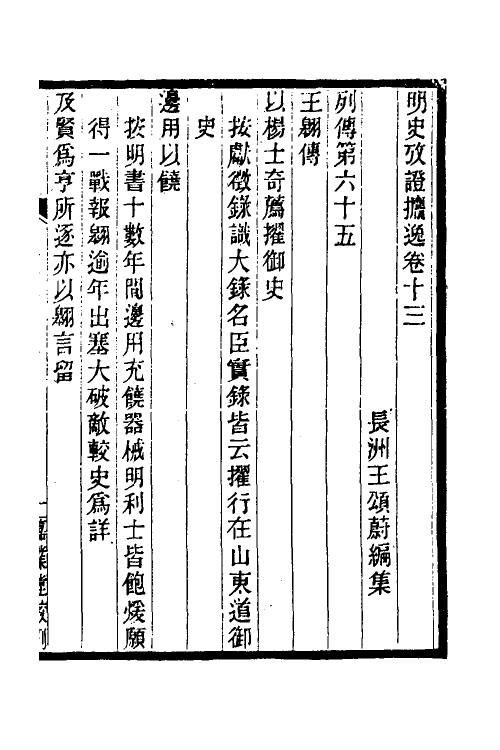 明史攷證攟逸卷十三
長洲王頌蔚編集
列傳第六十五
王翺傳
以楊士奇薦擢御史
按獻徵錄識大錄名臣實錄皆云擢行在山東道御
史
邊用以饒
按明書十數年間邊用充饒器械明利士皆飽煖願
得一戰報翺逾年出塞大破敵較史爲詳
及賢爲亨所逐亦以翺言留
一